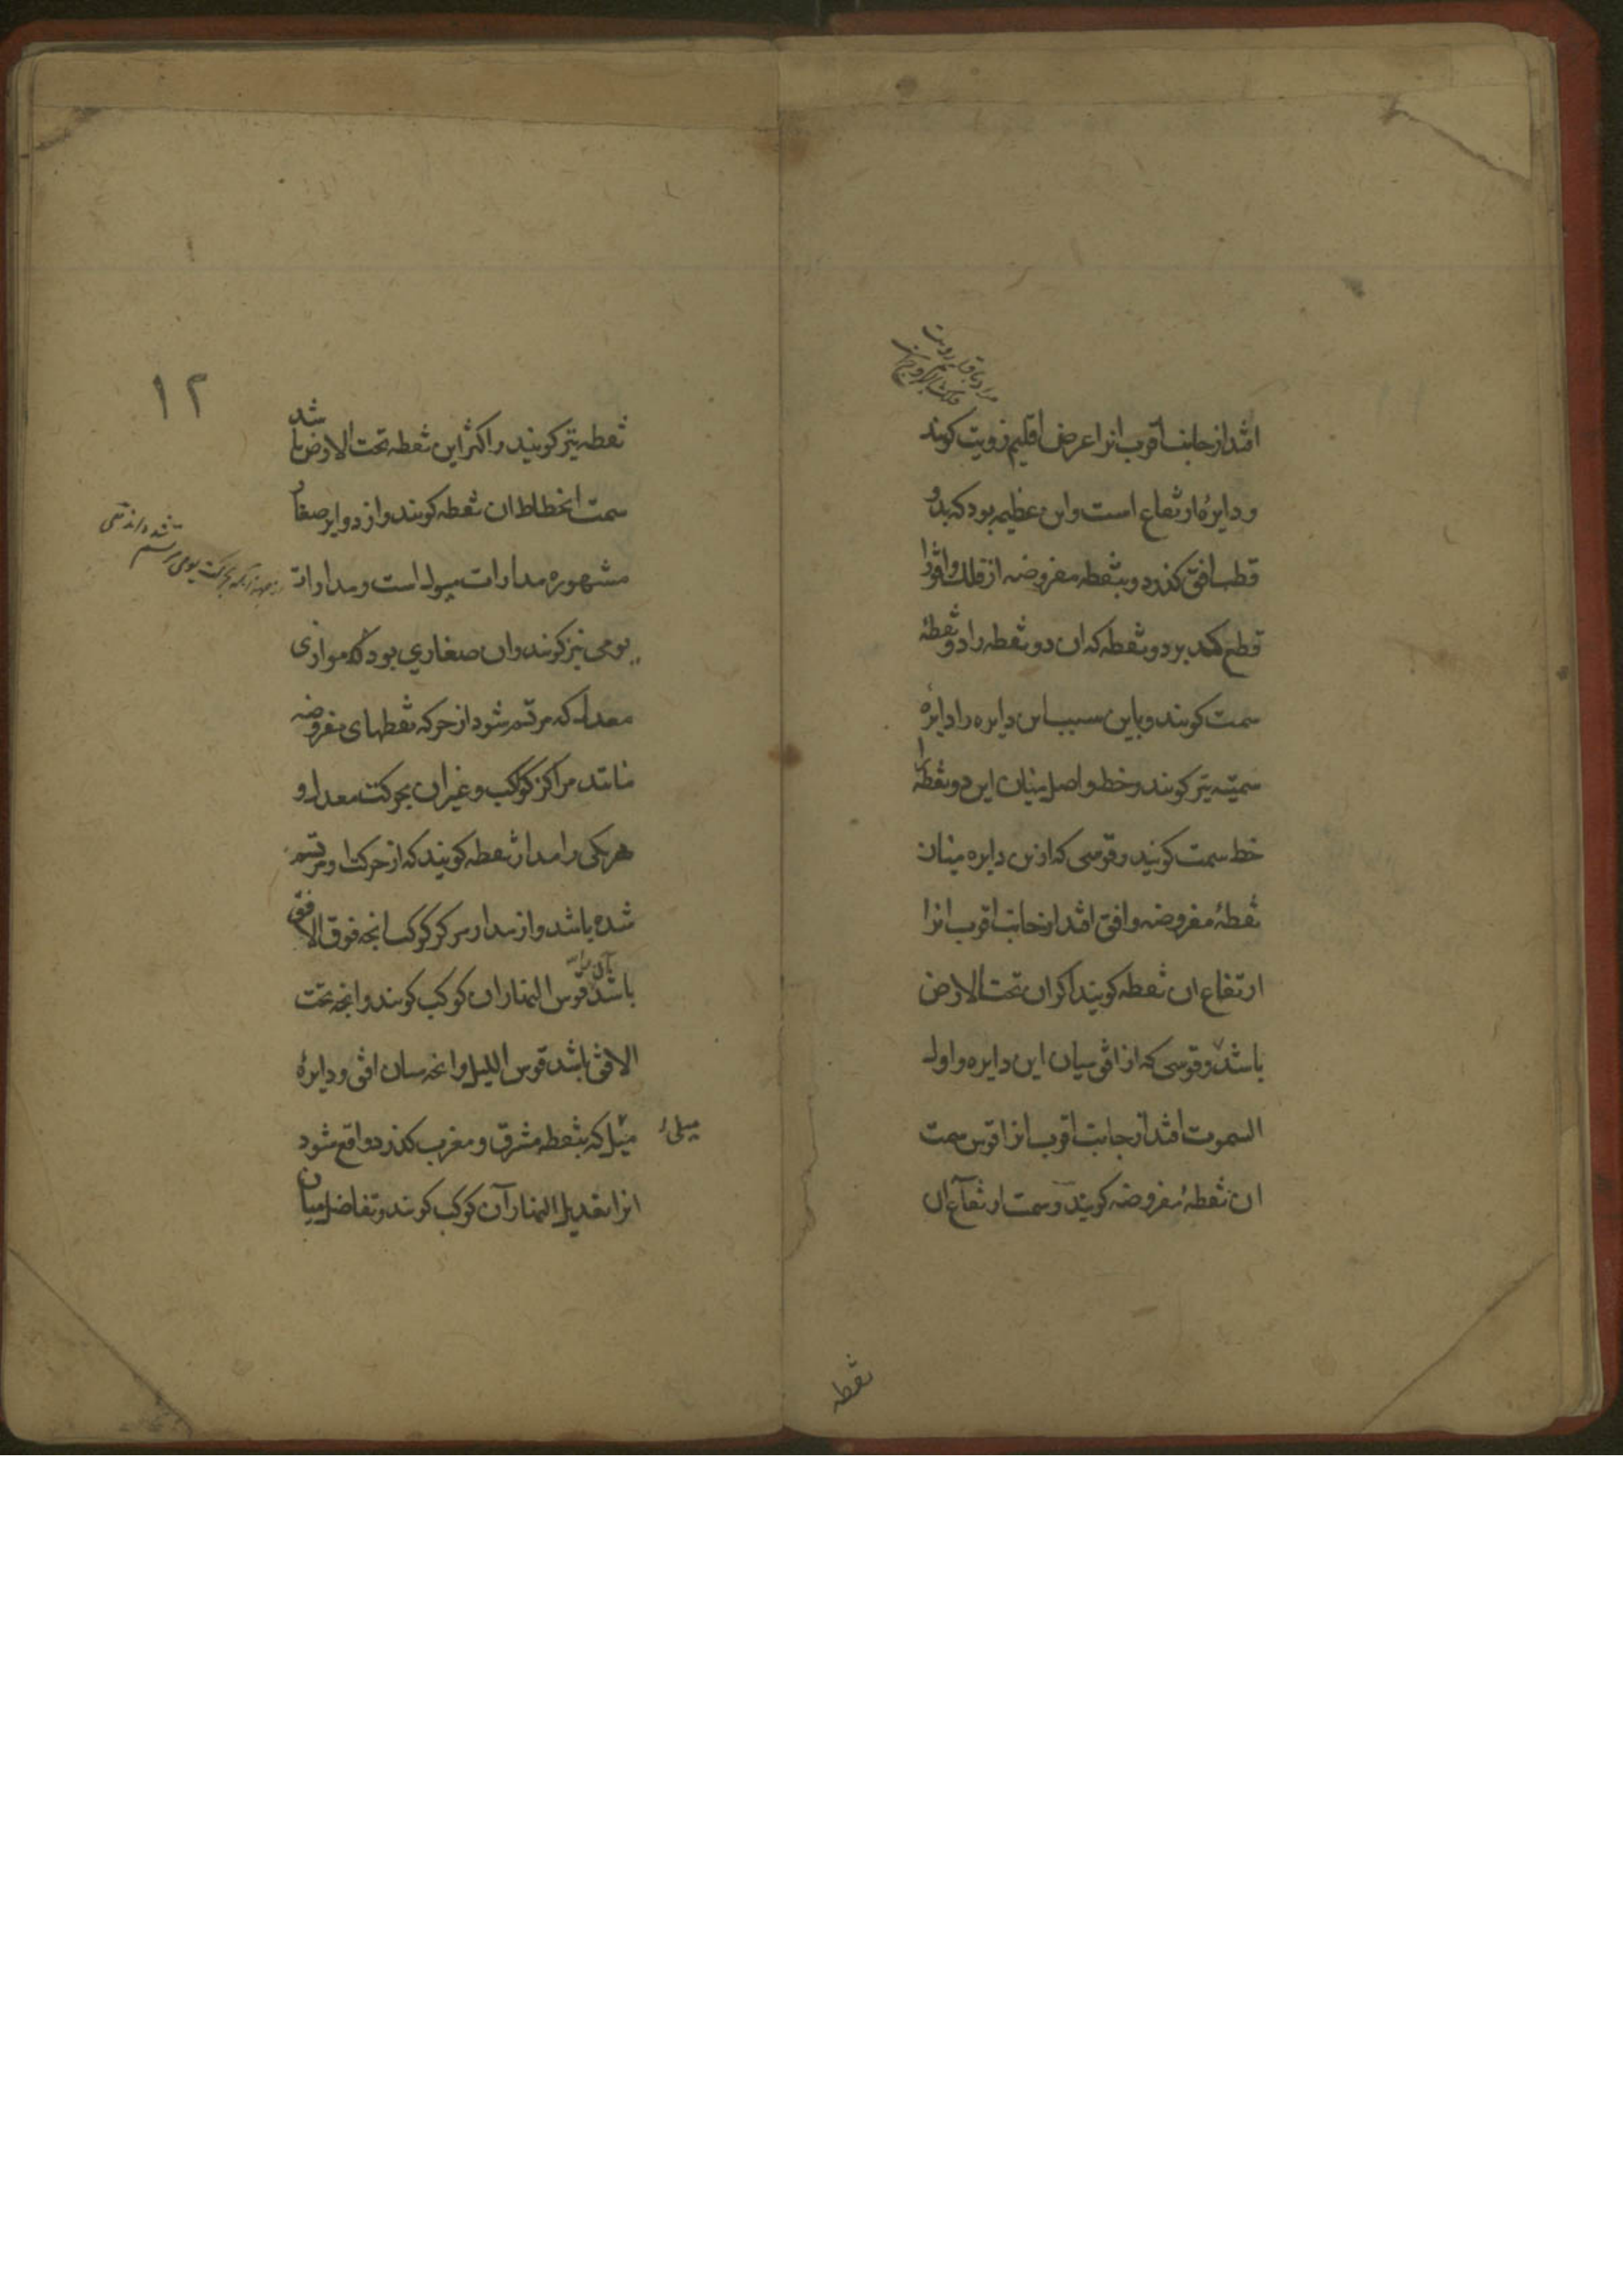 افتد از جانب اقرب انرا عرض اقلیم رویت کویند
و دایرهٔ ارتفاع است و این عظیمه بود که بدو
قطب افق کذرد و بنقطه مفروضه از فلک و افق را
قطع کند بر دو نقطه که ان دو نقطه را دو نقطهٔ
سمت کویند و باین سبب این دایره را دایرهٔ
سمتیه نیز کویند و خط واصل میان این دو نقطه را
خط سمت کویند و قوسی که ازین دایره میان
نقطهٔ مفروضه و افق افتد از جانب اقرب انرا
ارتفاع ان نقطه کویند اکر ان تحت الارض
باشد و قوسی که از افق میان این دایره و اول
السموت افتد از جانب اقرب انرا قوس سمت
ان نقطهٔ مفروضه کویند و سمت ارتفاع ان
نقطه
۱۲
نقطه نیز کویند و اکر این نقطه تحت الارض باشد
سمت انحطاط ان نقطه کویند و از دوایر صغار
مشهوره مدارات میول است و مدارات
یومی نیز کویند و ان صغاری بود که موازی
معدل که مرتسم شود از حرکه نقطهای مفروضه
مانند مراکز کواکب و غیر ان بحرکت معدل و
هر یکی را مدار نقطه کویند که از حرکت او مرتسم
شده باشد و از مدار مرکز کوکب انچه فوق الافق
باشد قوس النهار ان کوکب کویند و انچه تحت
الافق باشد قوس اللیل و انچه میان افق و دایرهٔ
میل که بنقطه مشرق و مغرب کذرد واقع شود
انرا تعدیل النهار آن کوکب کویند و تفاضل میان